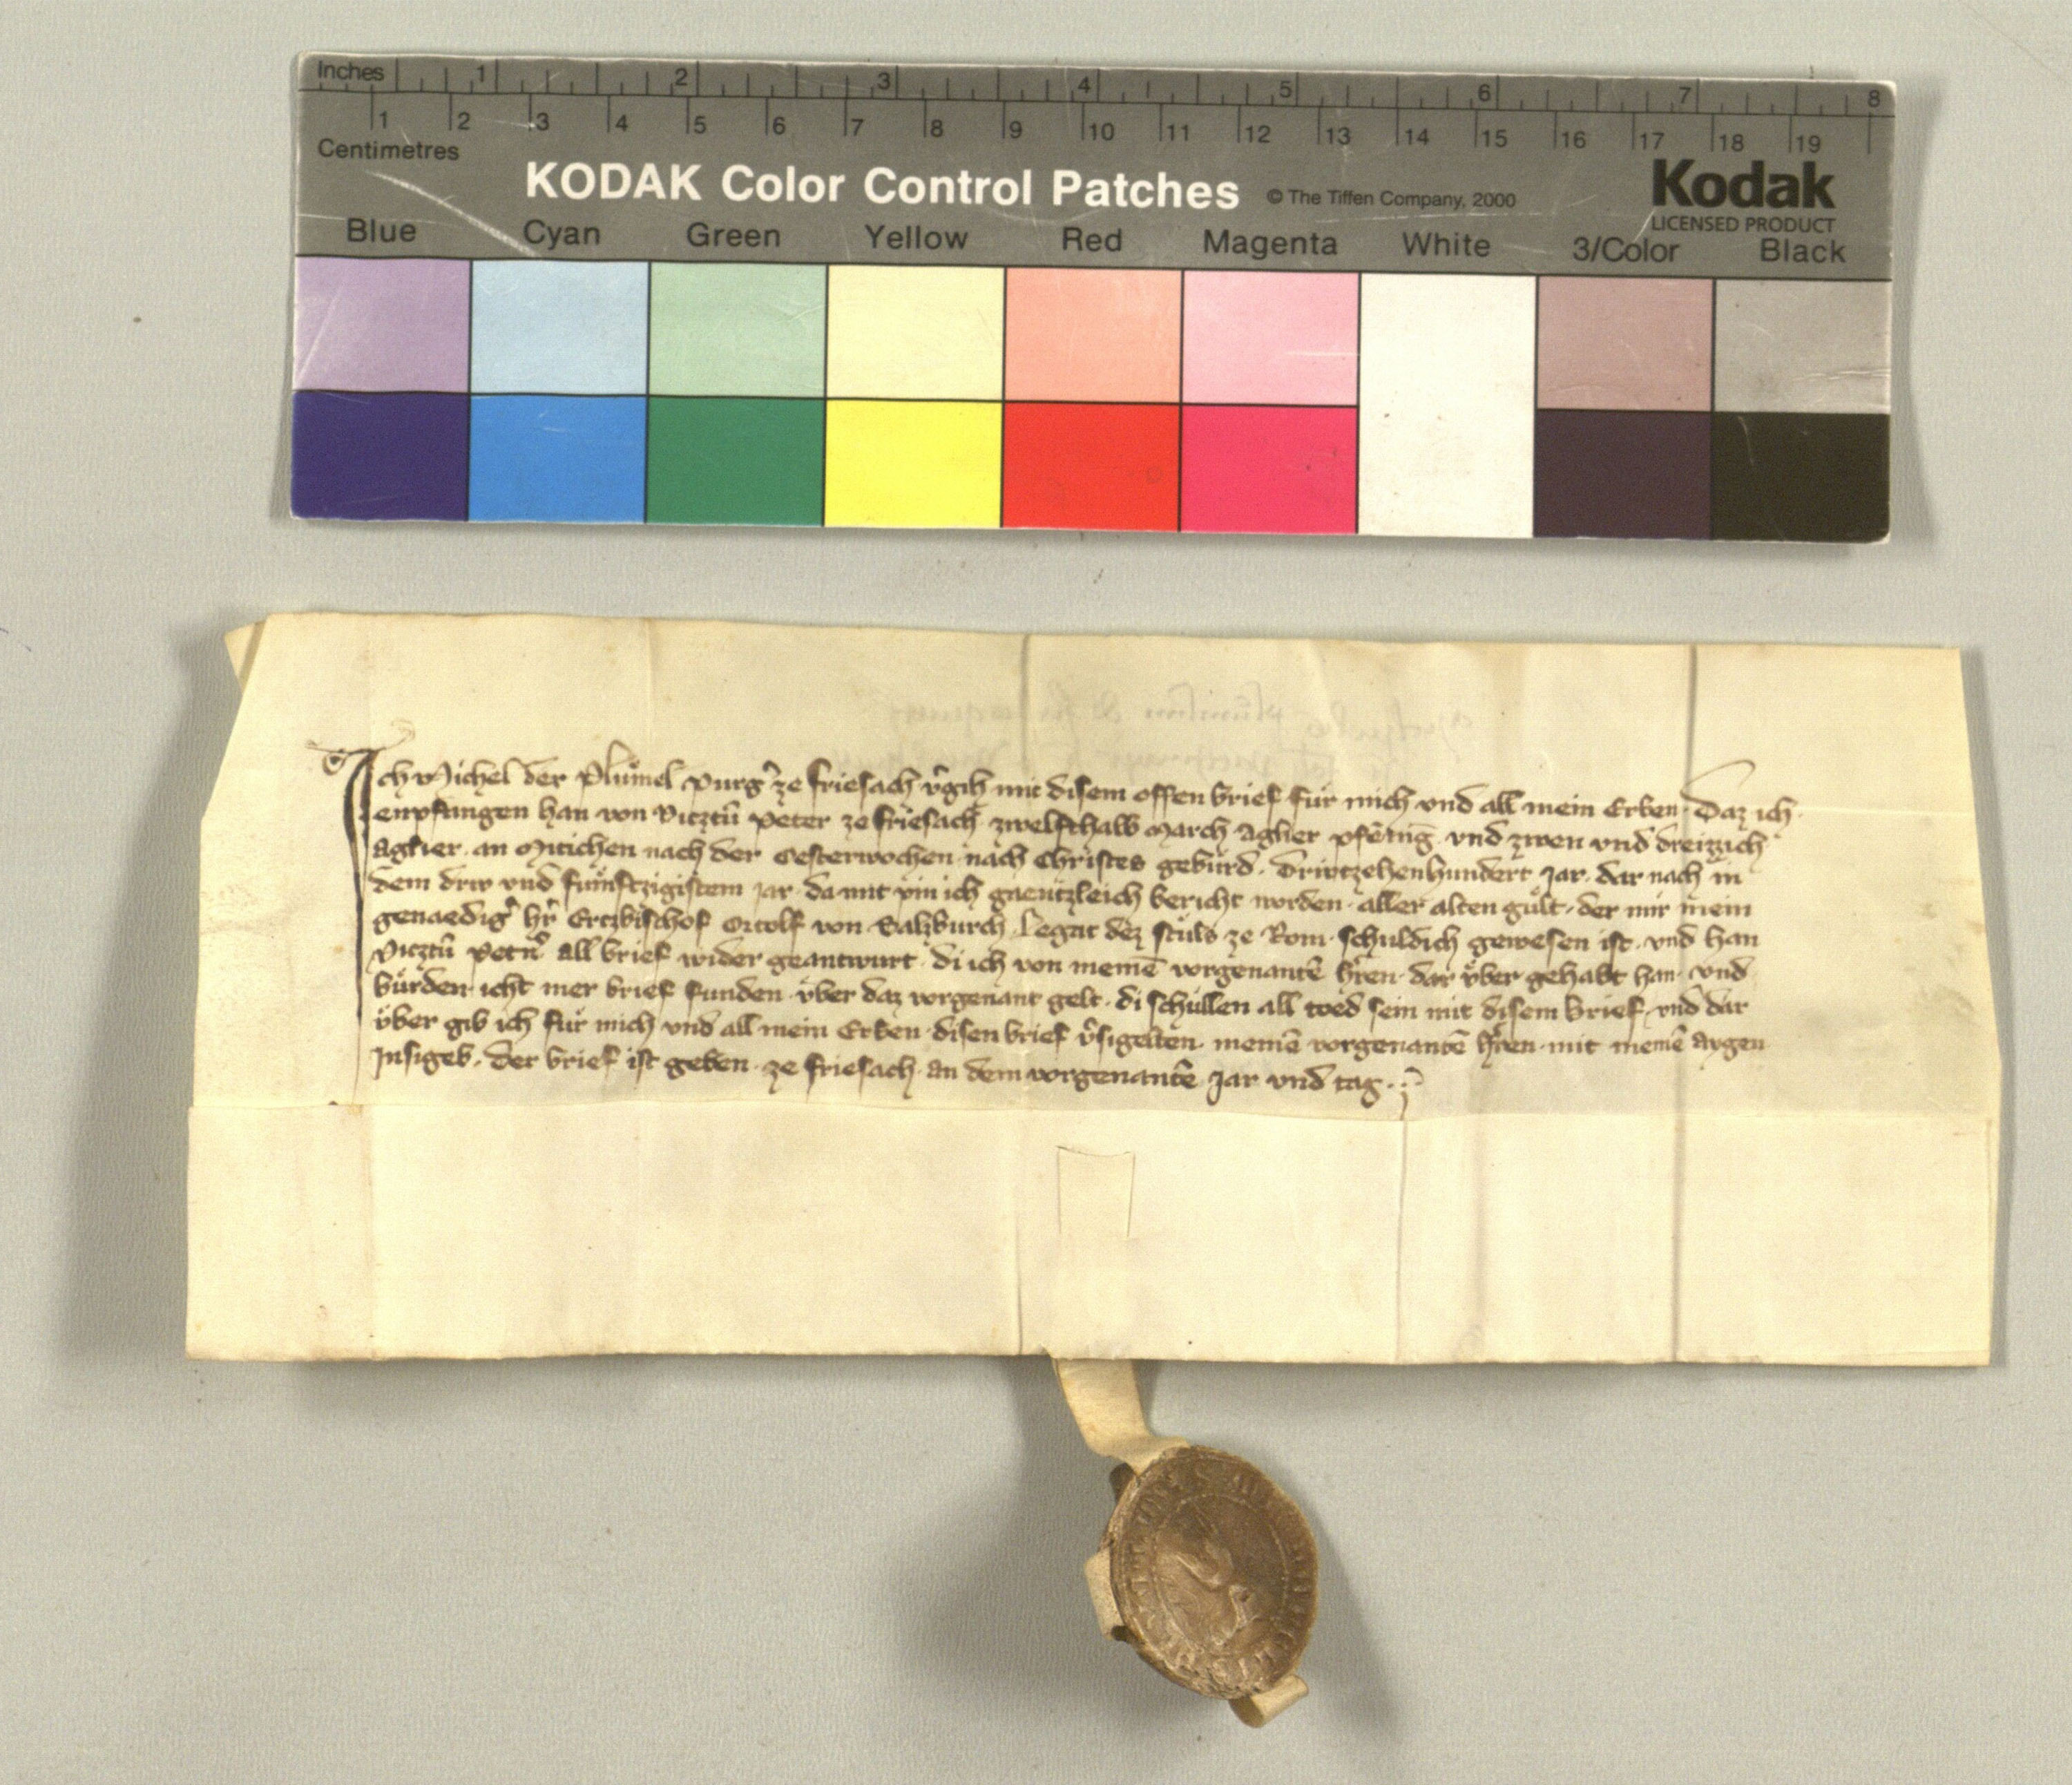 Inches 1 2 3 4 5 6 7 8
1 2 3 4 5 6 7 8 9 10 11 12 13 14 15 16 17 18 19
Centimetres
KODAK Color Control Patches © The Tiffen Company, 2000 Kodak
LICENSED PRODUCT
Blue Cyan Green Yellow Red Magenta White 3/Color Black
Ich Michel der Pluͤmel purg̓ ze friesach v̓gih mit disem offen brief fuͤr mich vnd all mein Erben · Daz ich ·
enpfangen han von Vitztū Peter ze friesach zwelfthalb March Aglier pfēnig vnd zwen vnd dreizzich
Aglier · an Mitichen nach der Oesterwochen nach Christes gebuͤrd · Driwtzehenhundert Jar · dar nach in
dem driw vnd fuͤmftzigistem Jar · da mit pin ich gaentzleich bericht worden · aller alten guͤlt · der mir mein
genaedig̓ hr̓ Ertzbischof Ortolf von Salzburch · Legat dez stuͤls ze Rom · schuldich gewesen ist · vnd han
Vitztū Petn̓ all brief wider geantwurt · di ich von meinē vorgenantē hr̓en · dar vͤber gehabt han · vnd
buͤrden icht mer brief funden · vͤber daz vorgenant gelt · di schuͤllen all toed sein mit disem brief · vnd dar
vͤber gib ich fuͤr mich vnd all mein Erben · disen brief v̓sigelten · meinē vorgenantē hr̓en · mit meinē aygen
Insigel · Der brief ist geben · ze friesach · an dem vorgenantē Jar vnd tag ·